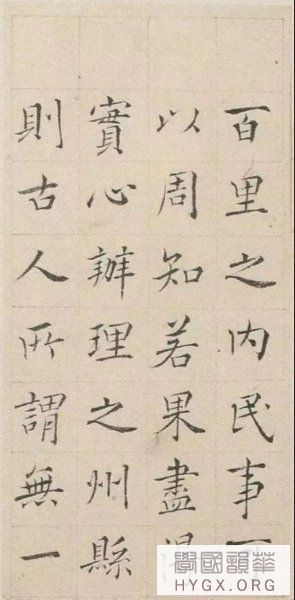 百里之內民事
以周知若果盡
實心辦理之州縣
則古人所謂無一
學國韻華
HYGX.ORG